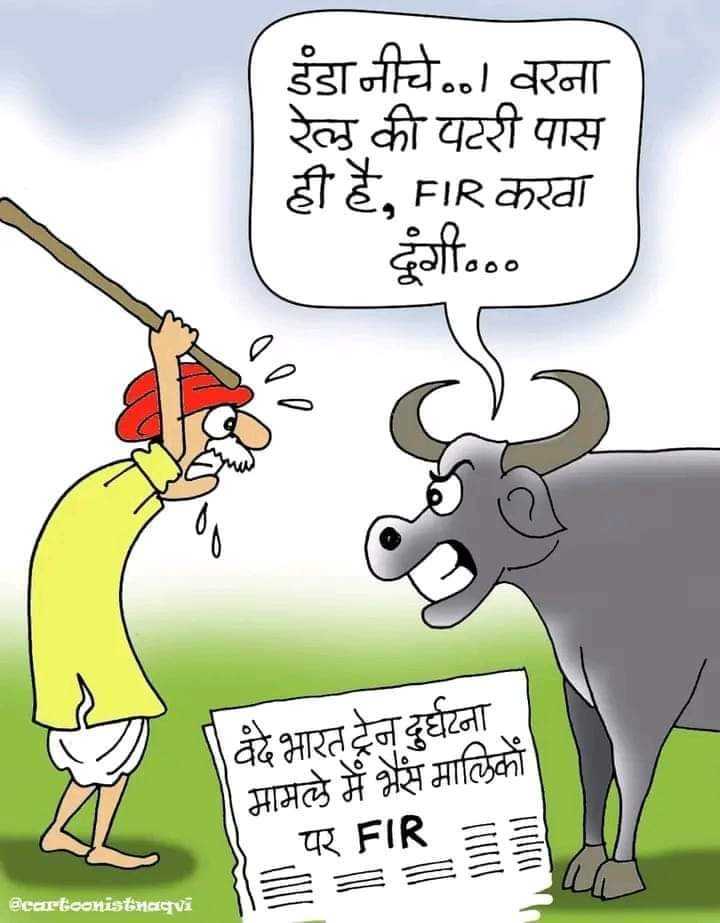 डंडा नीचे..। वरना
रेल की पटरी पास
ही है, FIR करवा
दूंगी...
वंदे भारत ट्रेन दुर्घटना
मामले में भैंस मालिकों
पर FIR
@cartoonistnaqvi